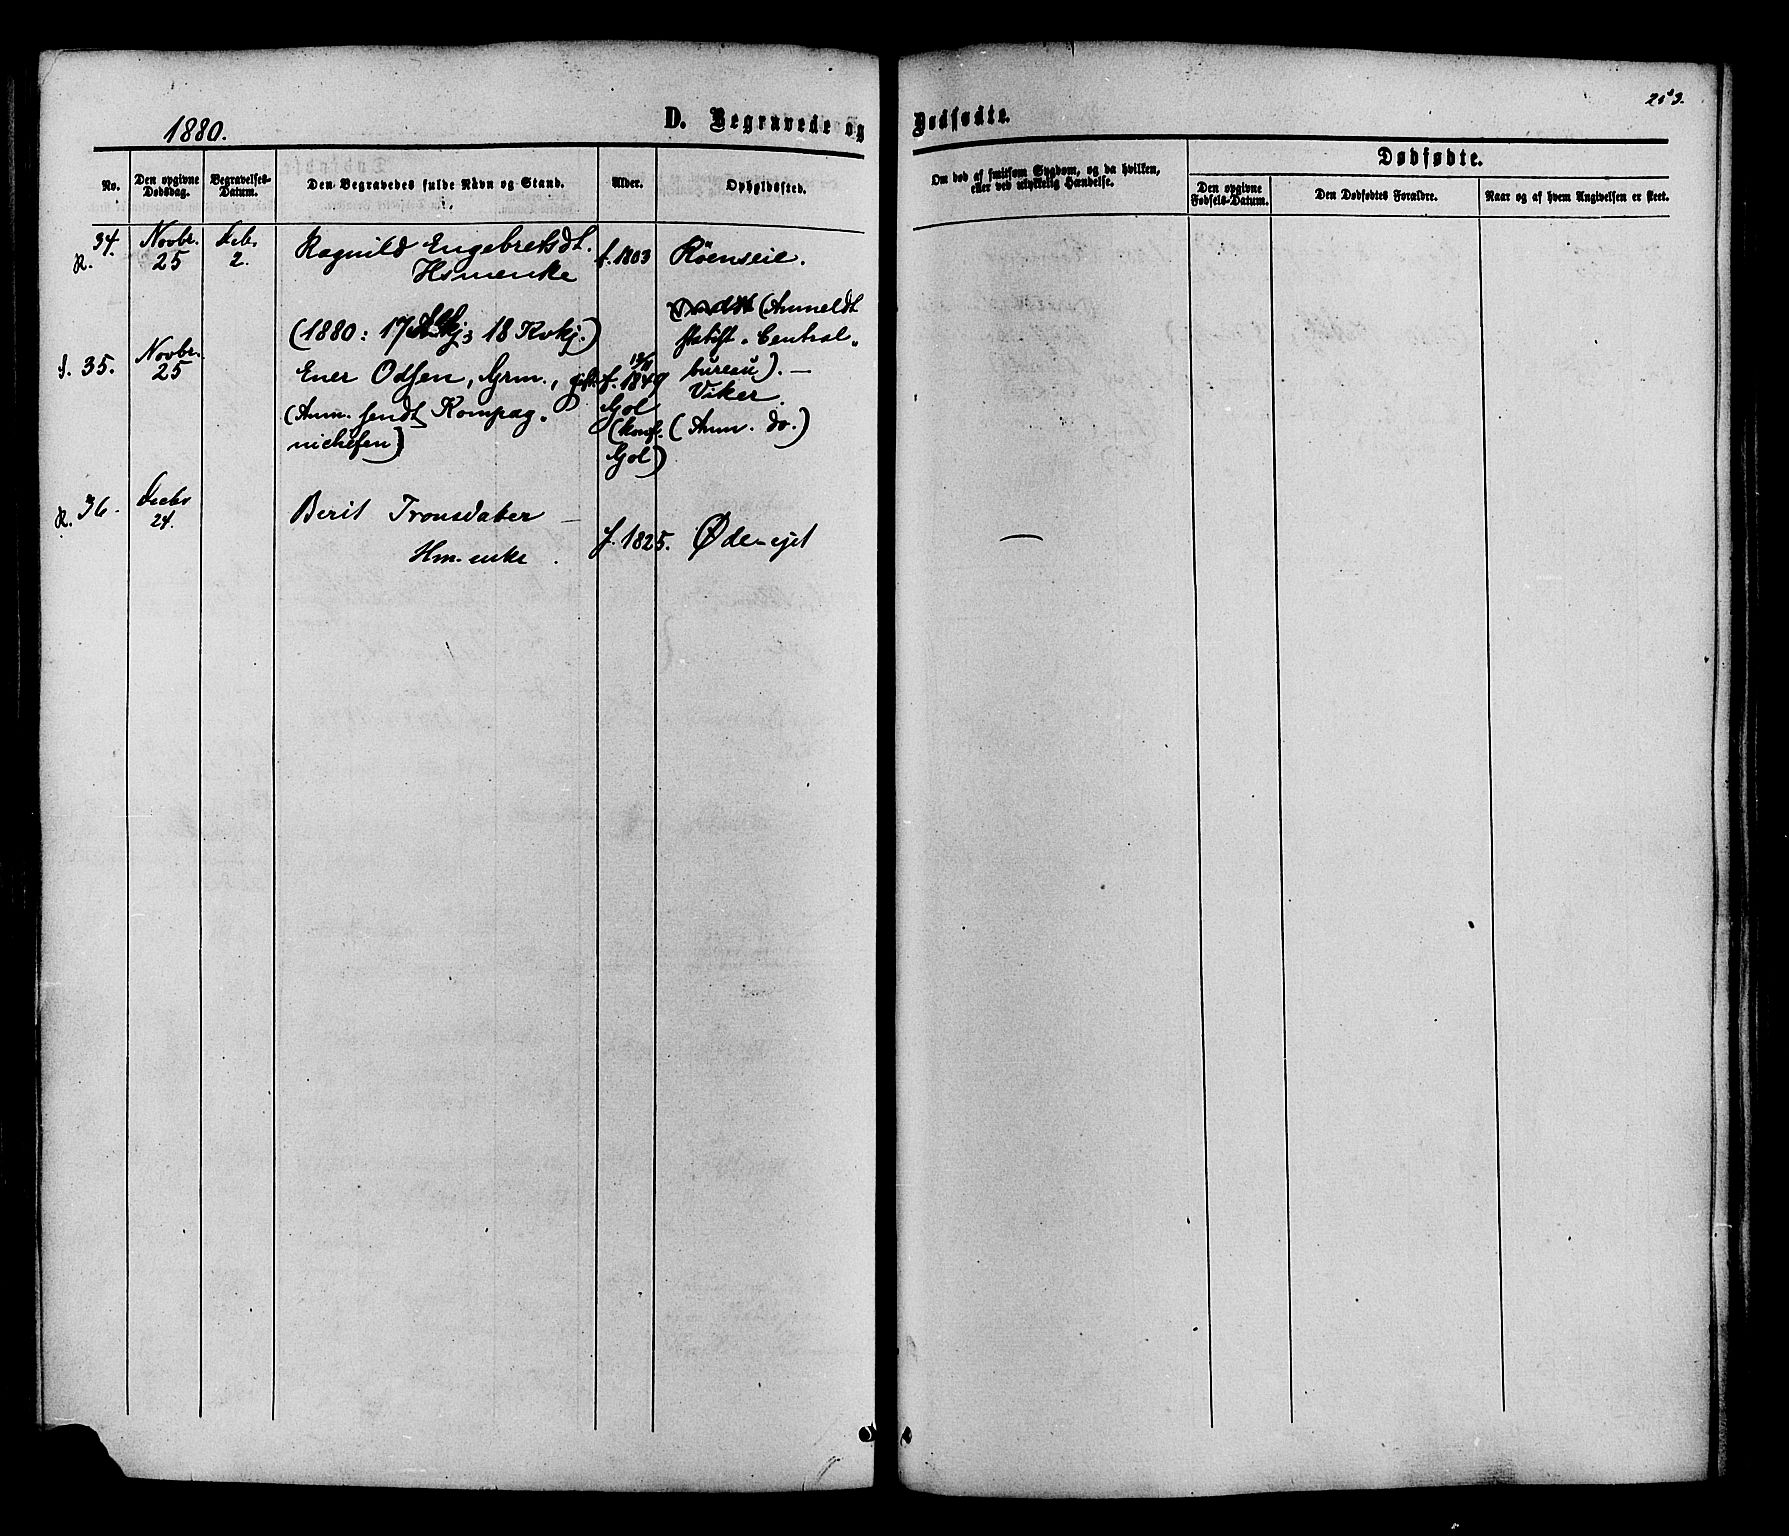 213.
1880.
D. Begravede og Dødfødte.
No.
Den opgivne Dødsdag.
Begravelses-Datum.
Den Begravedes fulde Navn og Stand.
Alder.
Opholdssted.
Om død af smitsom Sygdom, og da hvilken, eller ved ulykkelig Hændelse.
Dødfødte.
Den opgivne Fødsels-Datum.
Den Dødfødtes Forældre.
Naar og af hvem Angivelsen er skeet.
R. 34. Novbr. 25 Decbr. 2. Ragnild Engebretsdt. f. 1803 Röenseie.
Hsmenke
(1880: 17 Mkj; 18 Kvkj.) (Anmeldt
statist. Central-
bureau). —
f. 35. Novbr. 25 Ener Odsen, Grm., gift f. 1849 Viker.
(Anm. sendt Kompag- Gol (Anm. do.)
nichefen) (konf. Gol)
R. 36. Decbr 24. Berit Tronsdater —
Hm-enke. f. 1825. Øde-ejet —